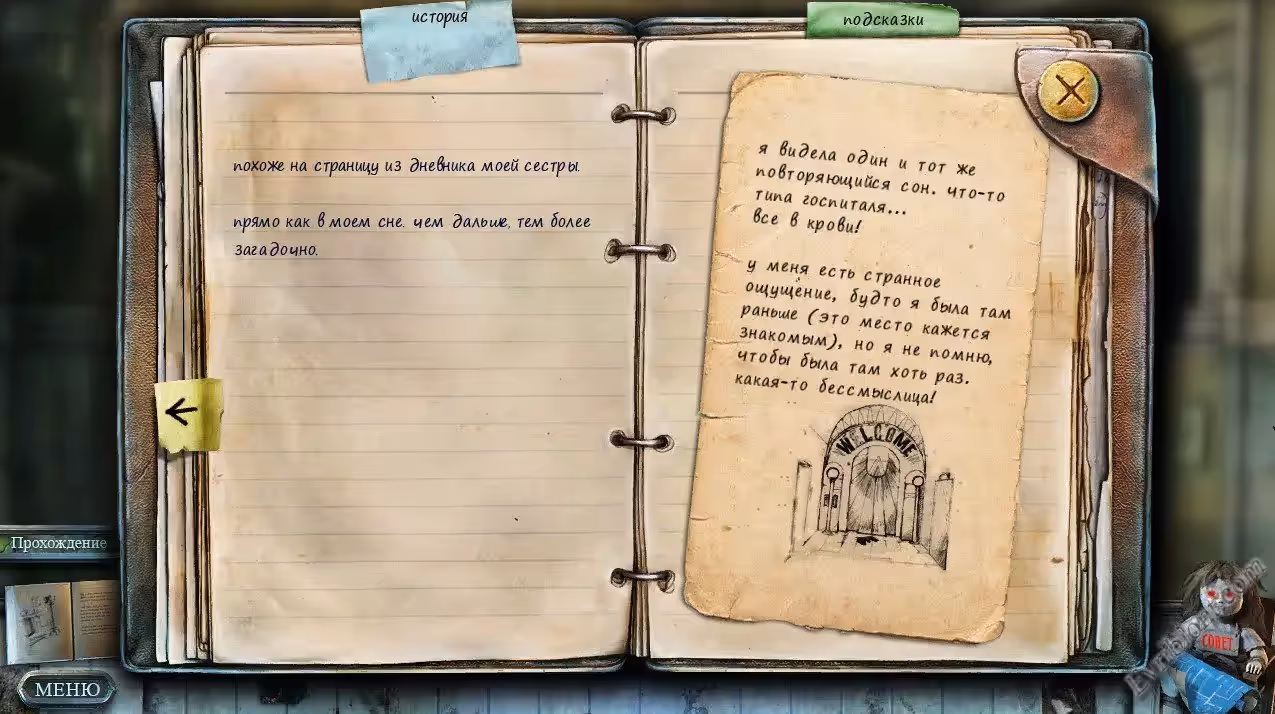 история
подсказки
похоже на страницу из дневника моей сестры.
прямо как в моем сне. чем дальше, тем более
загадочно.
я видела один и тот же
повторяющийся сон. что-то
типа госпиталя...
все в крови!
у меня есть странное
ощущение, будто я была там
раньше (это место кажется
знакомым), но я не помню,
чтобы была там хоть раз.
какая-то бессмыслица!
WELCOME
Прохождение
МЕНЮ
СОВЕТ